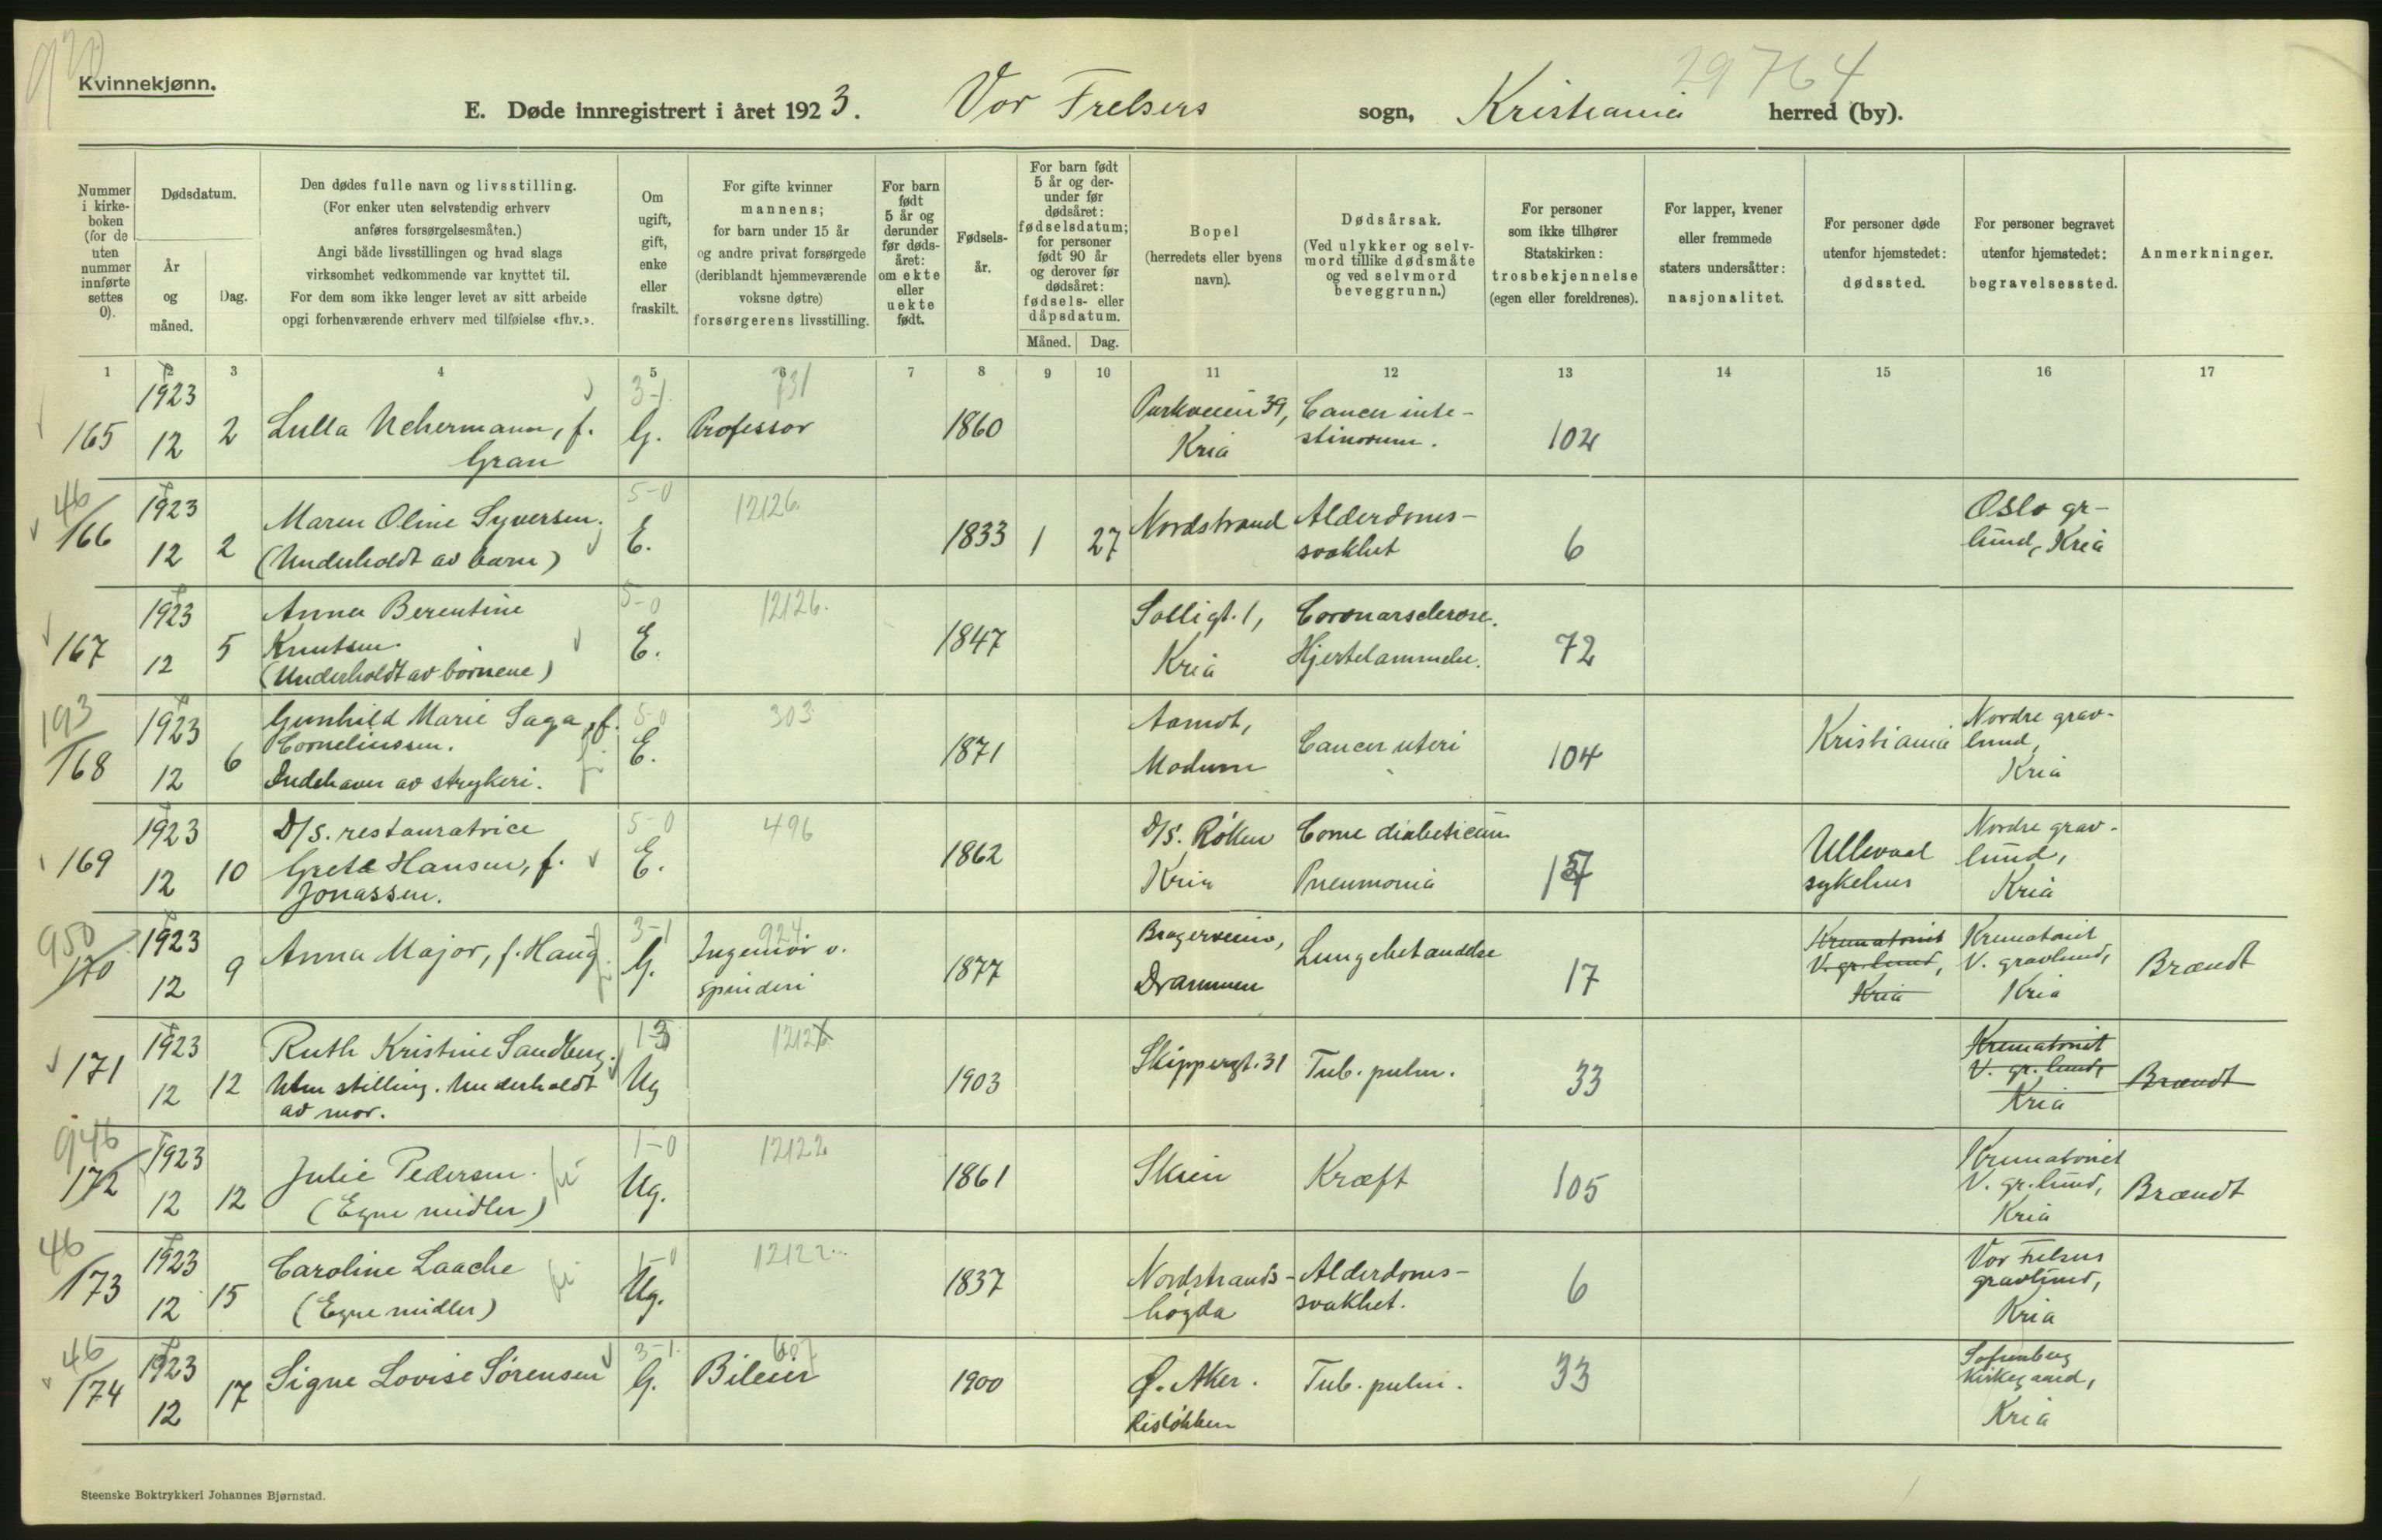 920
Kvinnekjønn.
E. Døde innregistrert i året 1923. Vor Frelsers sogn, Kristiania herred (by).
29764
Nummer i kirkeboken (for de uten nummer innførte settes 0).
Dødsdatum.
År og måned.
Dag.
Den dødes fulle navn og livsstilling.
(For enker uten selvstendig erhverv
anføres forsørgelsesmåten.)
Angi både livsstillingen og hvad slags
virksomhet vedkommende var knyttet til.
For dem som ikke lenger levet av sitt arbeide
opgi forhenværende erhverv med tilføielse «fhv.».
Om ugift, gift, enke eller fraskilt.
For gifte kvinner
mannens;
for barn under 15 år
og andre privat forsørgede
(deriblandt hjemmeværende
voksne døtre)
forsørgerens livsstilling.
For barn født 5 år og derunder før dødsåret: om ekte eller uekte født.
Fødselsår.
For barn født 5 år og derunder før dødsåret: fødselsdatum; for personer født 90 år og derover før dødsåret: fødsels- eller dåpsdatum.
Måned. Dag.
Bopel
(herredets eller byens
navn).
Dødsårsak.
(Ved ulykker og selvmord tillike dødsmåte og ved selvmord beveggrunn.)
For personer
som ikke tilhører
Statskirken:
trosbekjennelse
(egen eller foreldrenes).
For lapper, kvener
eller fremmede
staters undersåtter:
nasjonalitet.
For personer døde
utenfor hjemstedet:
dødssted.
For personer begravet
utenfor hjemstedet:
begravelsessted.
Anmerkninger.
1 2 3 4 5 6 7 8 9 10 11 12 13 14 15 16 17
165 1923 12 2 Lulla Uchermann, f. Gran 3-1 G. 731 Professor 1860 Parkveien 39, Kria Cancer intestinorum. 104
46 166 1923 12 2 Maren Oline Syversen. (Underholdt av barn) 5-0 E. 12126. 1833 1 27 Nordstrand Alderdomssvakhet 6 Oslo gr-lund, Kria
167 1923 12 5 Anna Berentine Knutsen. (Underholdt av børnene) 5-0 E. 12126. 1847 Solligt. 1, Kria Coronarsclerose. Hjertelammelse. 72
193 168 1923 12 6 Gunhild Marie Saga, f. Corneliussen. Indehaver av strykeri. 5-0 E. 303 1871 Aamot, Modum Cancer uteri 104 Kristiania Nordre gravlund, Kria
169 1923 12 10 D/S. restauratrice Grete Hansen, f. Jonassen. 5-0 E. 496 1862 D/S. Røken Kria Come diabeticum Pneumonia Ullevaal sykehus Nordre gravlund, Kria
950 170 1923 12 9 Anna Major, f. Haug 3-1 G. 924 Ingeniør v. spinderi 1877 Bragerveien, Drammen Lungebetændelse 17 Krematoriet V. gr.lund, Kria Krematoriet V. gravlund, Kria Brændt
171 1923 12 12 Ruth Kristine Sandberg. Uten stilling. Underholdt av mor. Ug 1903 Skippergt. 31 Tub. pulm. 33 Krematoriet V. gr. lund, Kria Brændt
946 172 1923 12 12 Julie Pedersen. (Egne midler) 1-0 Ug. 12122 1861 Skien Kræft 105 Krematoriet V. gr. lund, Kria Brændt
46 173 1923 12 15 Caroline Laache (Egne midler) 1-0 Ug. 12122 1837 Nordstrandshøgda Alderdomssvakhet. 6 Vor Frelsers gravlund, Kria
46 174 1923 12 17 Signe Lovise Sørensen 3-1. G. Bileier 1900 Ø. Aker. Risløkken Tub. pulm. 33 Sofienberg kirkegaard, Kria
Steenske Boktrykkeri Johannes Bjørnstad.